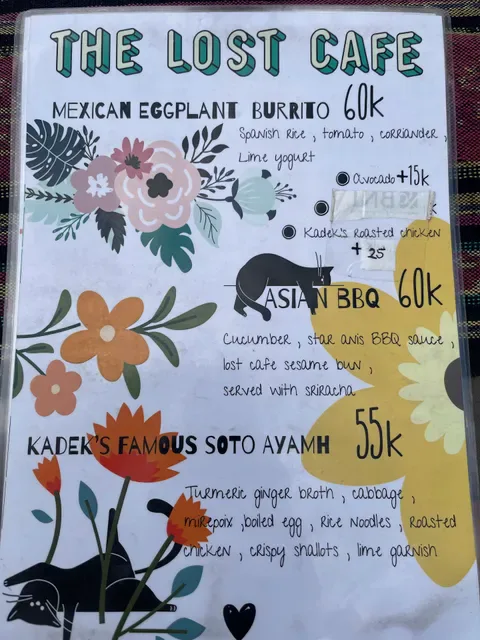 THE LOST CAFE
MEXICAN EGGPLANT BURRITO 60k
Spanish rice , tomato , corriander ,
Lime yogurt
Avocado +15k
Kadek's roasted chicken
+ 25
ASIAN BBQ 60k
Cucumber , star anis BBQ sauce ,
lost cafe sesame bun ,
served with sriracha
KADEK'S FAMOUS SOTO AYAMH 55k
Turmeric ginger broth , cabbage ,
mirepoix ,boiled egg , Rice Noodles , Roasted
chicken , crispy shallots , lime garnish